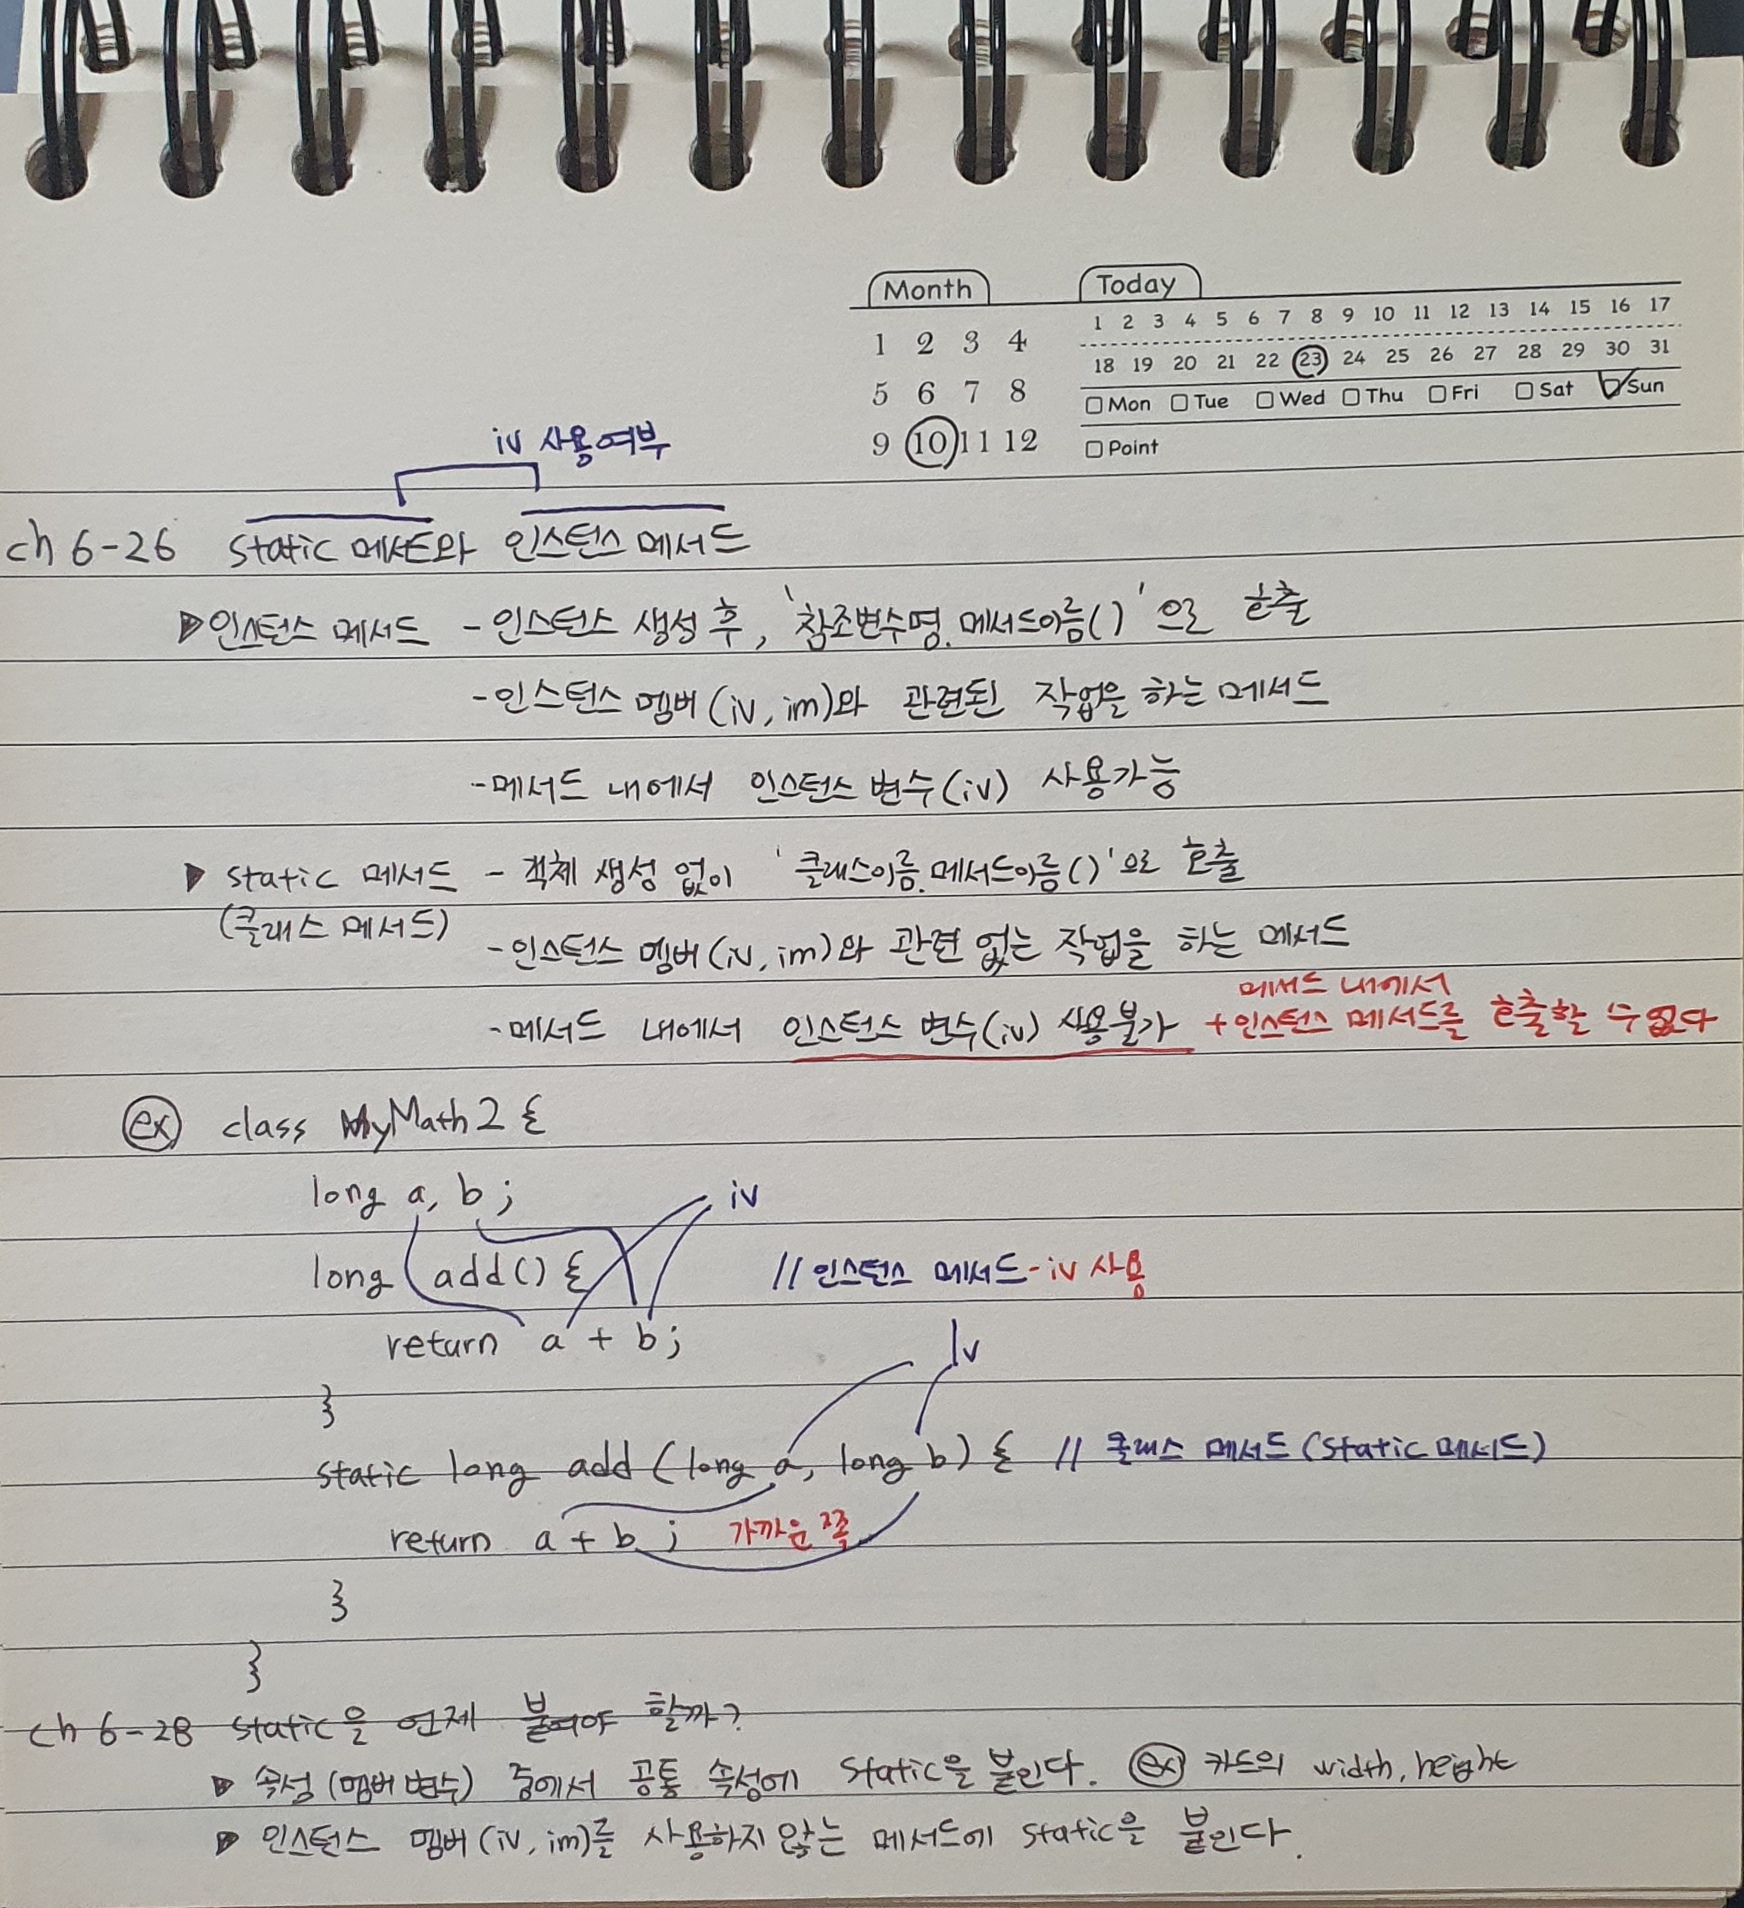 Month
Today
1 2 3 4
5 6 7 8
9 10 11 12
1 2 3 4 5 6 7 8 9 10 11 12 13 14 15 16 17
18 19 20 21 22 23 24 25 26 27 28 29 30 31
Mon Tue Wed Thu Fri Sat Sun
Point
iv 사용여부
ch 6-26 static 메서드와 인스턴스 메서드
▶인스턴스 메서드 - 인스턴스 생성 후, '참조변수명.메서드이름()'으로 호출
-인스턴스 멤버(iv, im)와 관련된 작업을 하는 메서드
-메서드 내에서 인스턴스 변수(iv) 사용가능
▶ static 메서드 - 객체 생성 없이 '클래스이름.메서드이름()'으로 호출
(클래스 메서드)
-인스턴스 멤버(iv, im)와 관련 없는 작업을 하는 메서드
-메서드 내에서 인스턴스 변수(iv) 사용불가
메서드 내에서
+인스턴스 메서드를 호출할 수 없다
ex class MyMath2 {
long a, b ;
iv
long add() { // 인스턴스 메서드-iv 사용
return a + b ;
lv
}
static long add (long a, long b) { // 클래스 메서드 (static 메서드)
return a + b ; 가까운 쪽
}
}
ch 6-28 static을 언제 붙여야 할까?
▶ 속성 (멤버 변수) 중에서 공통 속성에 static을 붙인다. ex 카드의 width, height
▶ 인스턴스 멤버 (iv, im)를 사용하지 않는 메서드에 static을 붙인다.